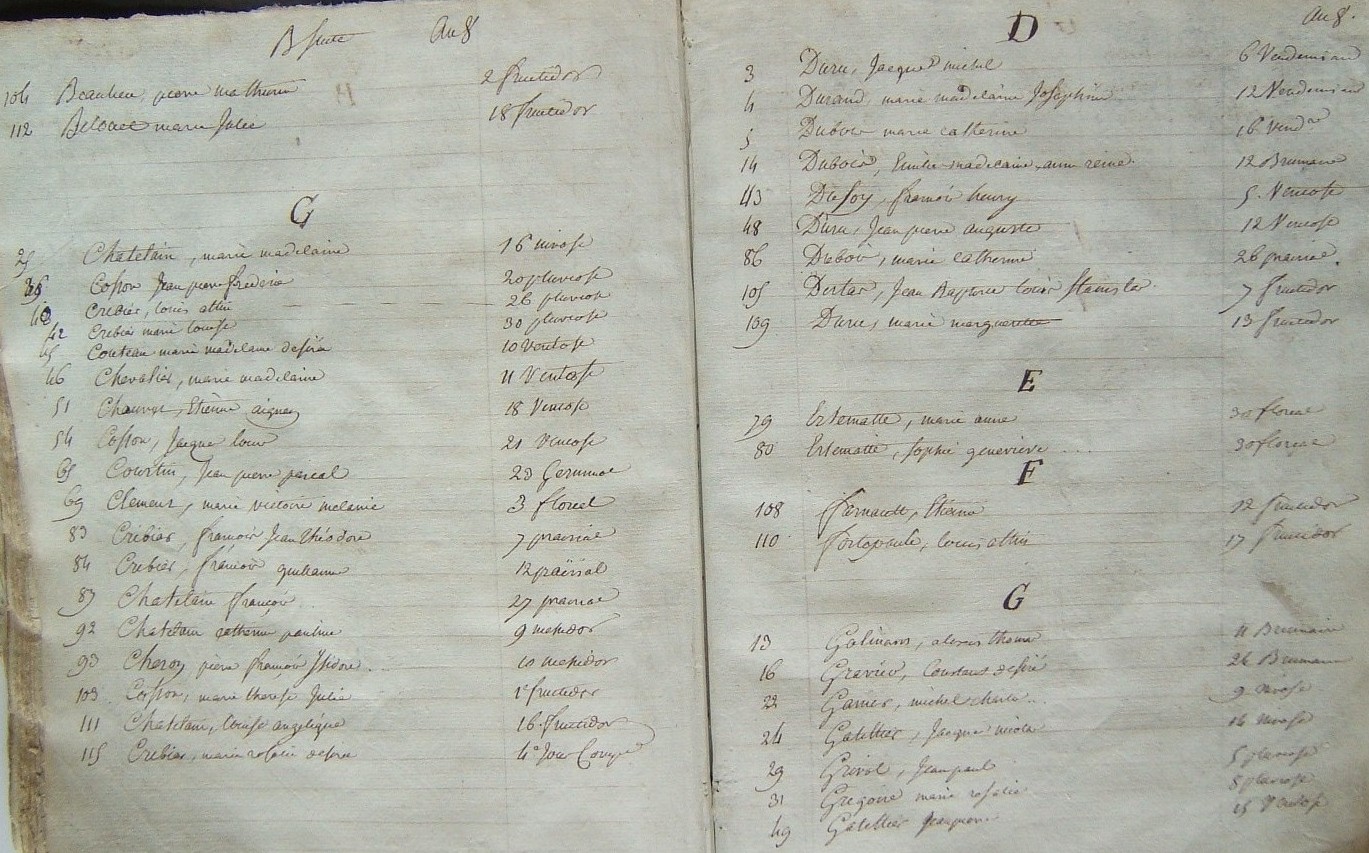 B suite An 8
104 Beaulieu, pierre mathurin 2 fructidor
112 Belouet marie Julie 18 fructidor
C
25 Chatelain, marie madelaine 16 nivose
39 Cosson Jean pierre frederic 20 pluviose
40 Crebier, louis 26 pluviose
42 Crebier marie louise 30 pluviose
45 Couteau marie madelaine desiré 10 Ventose
46 Chevalier, marie madelaine 11 Ventose
51 Chauvet, Etienne aignan 18 Ventose
54 Cosson, Jacque louis 21 Ventose
65 Courtin, Jean pierre pascal 23 Germinal
69 Clement, marie victoire melanie 3 floreal
83 Crebier, françois Jean théodore 7 prairial
84 Crebier, françois guillaume 12 prairial
87 Chatelain françois 27 prairial
92 Chatelain catherine pauline 9 mesidor
93 Cheron, pierre françois Isidore 10 mesidor
103 Cosson, marie therese Julie 1er fructidor
111 Chatelain, louise angelique 16 fructidor
115 Crebier, marie desiré 4e Jour Compre
D An 8.
3 Duru, Jacque michel 6 Vendemiaire
4 Durand, marie madelaine Josephine 12 Vendemiaire
5 Dubois marie catherine 16 Vendre
14 Dubois, Emilie madelaine anne reine 12 Brumaire
43 Dufoy, françois henry 5 Ventose
48 Duru, Jean pierre auguste 12 Ventose
86 Dubois, marie catherine 26 prairial.
105 Jean Baptiste louis Stanislas 7 fructidor
109 Duru, marie marguerite 13 fructidor
E
79 Estematte, marie anne 30 floreal
80 Estematte, sophie genevieve .... 30 floreal
F
108 Etienne 12 fructidor
110 louis 17 fructidor
G
13 alexis thomas 11 Brumaire
16 Gravier, Constans desiré 26 Brumaire
22 Garnier, michel charles 9 nivose
24 Galellier, Jacque nicolas 16 nivose
29 Grivot, Jean paul 5 pluviose
31 Gregoire marie rosalie 8 pluviose
49 Galellier Jean pierre 15 Ventose